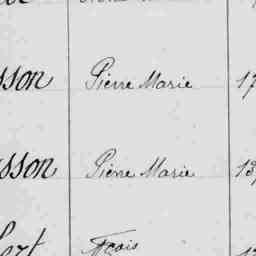 sson Pierre Marie 17
sson Pierre Marie 13
bert Fçois